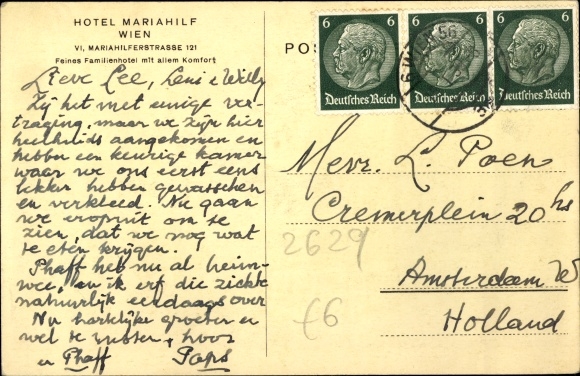 HOTEL MARIAHILF
WIEN
VI, MARIAHILFERSTRASSE 121
Feines Familienhotel mit allem Komfort
Lieve Lee, Leni & Willy
Zij het met eenige ver-
traging, maar we zijn hier
heelhuids aangekomen en
hebben een keurige kamer
waar we ons eerst eens
lekker hebben gewasschen
en verkleed. Nu gaan
we eropuit om te
zien, dat we nog wat
te eten krijgen.
Phaff heb nu al heim-
wee, en ik erf die ziekte
natuurlijk eendaags over
Nu hartelijke groeten en
wel te rusten, hoor
Phaff Paps
PO
6 6 6 6 6
Deutsches Reich Deutsches Reich Deutsches Reich
Mevr. L. Poen
Cremerplein 20 hs
2629
Amsterdam W
Holland
£6